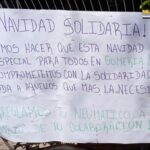 NAVIDAD SOLIDARIA!
MOS HACER QUE ESTA NAVIDAD
ESPECIAL PARA TODOS EN GOMERIA
OMPROMETERNOS CON LA SOLIDARIDAD
DA A AQUELLOS QUE MAS LA NECESI
TU NEUMATICO A
DE TU COLABORACIÓN!